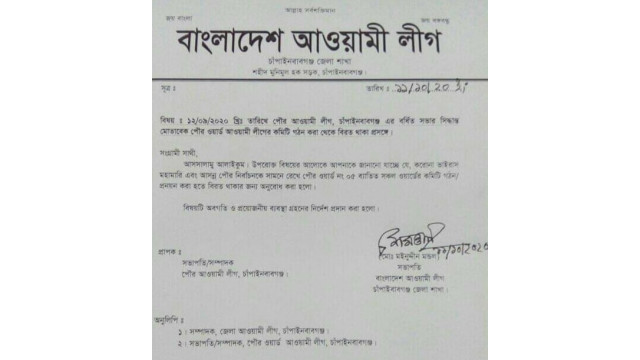 আল্লাহ সর্বশক্তিমান
জয় বাংলা
জয় বঙ্গবন্ধু
বাংলাদেশ আওয়ামী লীগ
চাঁপাইনবাবগঞ্জ জেলা শাখা
শহীদ মুনিমুল হক সড়ক, চাঁপাইনবাবগঞ্জ।
সূত্র ঃ
তারিখ ঃ ১১/১০/২০ ইং
বিষয় ঃ ১২/০৯/২০২০ খ্রিঃ তারিখে পৌর আওয়ামী লীগ, চাঁপাইনবাবগঞ্জ এর বর্ধিত সভার সিদ্ধান্ত
মোতাবেক পৌর ওয়ার্ড আওয়ামী লীগের কমিটি গঠন করা থেকে বিরত থাকা প্রসঙ্গে।
সংগ্রামী সাথী,
আসসালামু আলাইকুম। উপরোক্ত বিষয়ের আলোকে আপনাকে জানানো যাচ্ছে যে, করোনা ভাইরাস
মহামারি এবং আসন্ন পৌর নির্বাচনকে সামনে রেখে পৌর ওয়ার্ড নং ০৫ ব্যাতিত সকল ওয়ার্ডের কমিটি গঠন/
প্রনয়ন করা হতে বিরত থাকার জন্য অনুরোধ করা হলো।
বিষয়টি অবগতি ও প্রয়োজনীয় ব্যবস্থা গ্রহনের নির্দেশ প্রদান করা হলো।
১১/১০/২০২০
(মোঃ মইনুদ্দীন মন্ডল)
সভাপতি
বাংলাদেশ আওয়ামী লীগ
চাঁপাইনবাবগঞ্জ জেলা শাখা।
প্রাপক ঃ
সভাপতি/সম্পাদক
পৌর আওয়ামী লীগ, চাঁপাইনবাবগঞ্জ।
অনুলিপি ঃ
১। সম্পাদক, জেলা আওয়ামী লীগ, চাঁপাইনবাবগঞ্জ।
২। সভাপতি/সম্পাদক, পৌর ওয়ার্ড আওয়ামী লীগ, চাঁপাইনবাবগঞ্জ।